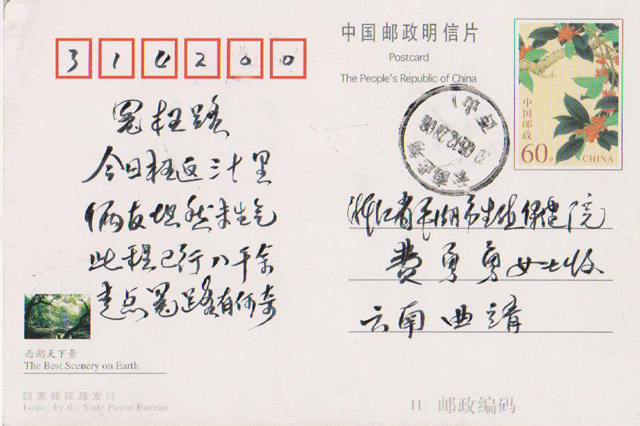 314200
中国邮政明信片
Postcard
The People's Republic of China
中国邮政
60分
CHINA
冤枉路
今日枉返三十里
俩友坦然未生气
此程已行八千余
走点冤路有何奇
浙江省平湖市生殖保健院
费勇勇女士收
云南曲靖
西湖天下景
The Best Scenery on Earth
国家邮政局发行
Issued by the State Postal Bureau
11 邮政编码